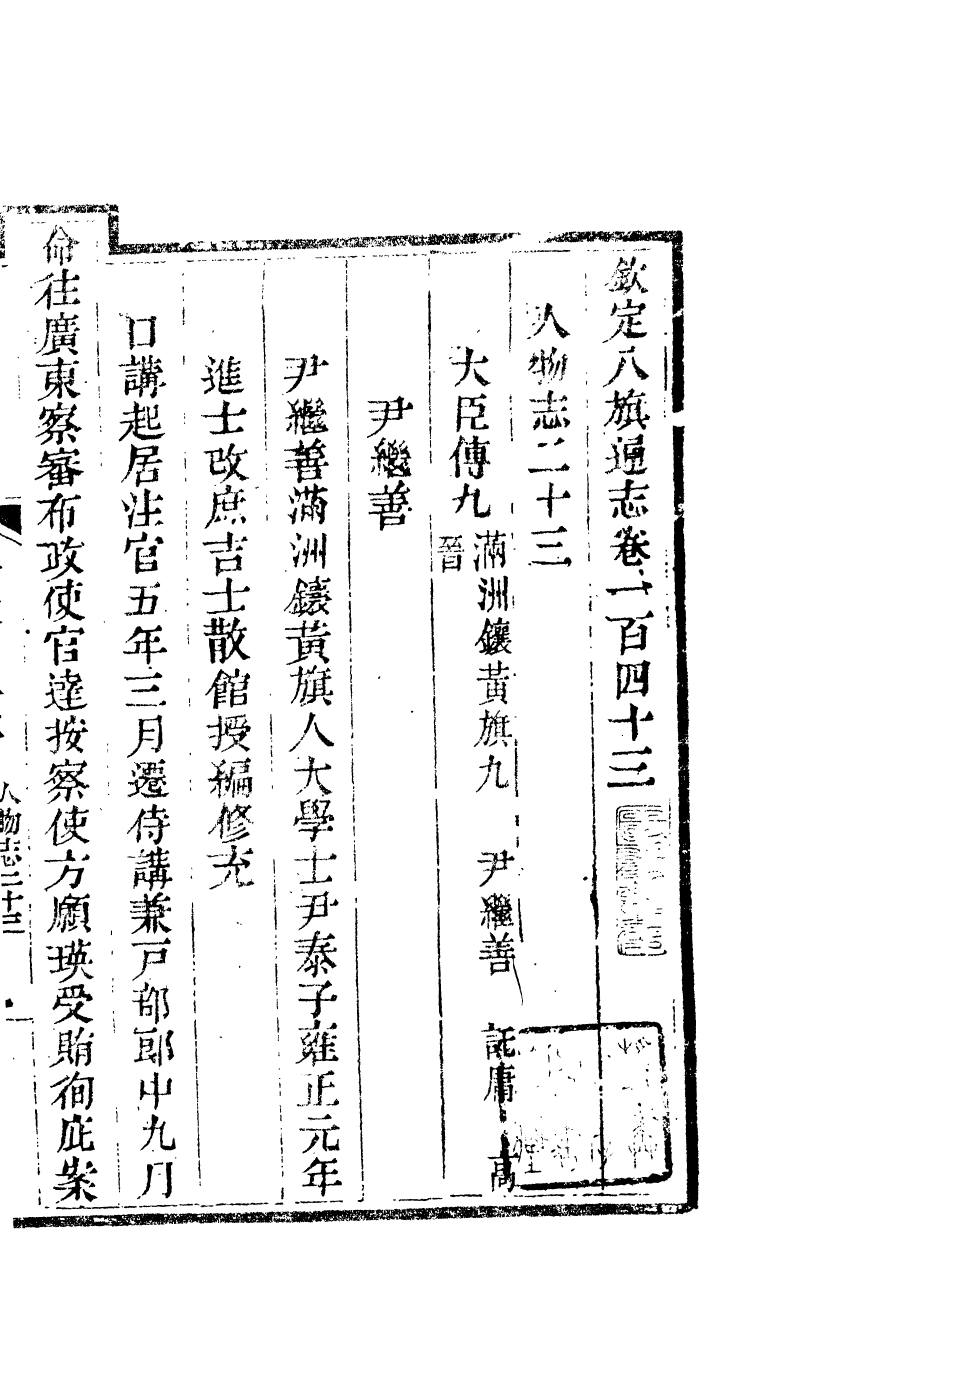 欽定八旗通志卷一百四十三
人物志二十三
大臣傳九 滿洲鑲黃旗九 尹繼善 託庸 高晉
尹繼善
尹繼善滿洲鑲黃旗人大學士尹泰子雍正元年
進士改庶吉士散館授編修充
日講起居注官五年三月遷侍講兼戶部郎中九月
命往廣東察審布政使官達按察使方願瑛受賄徇庇案
人物志二十三